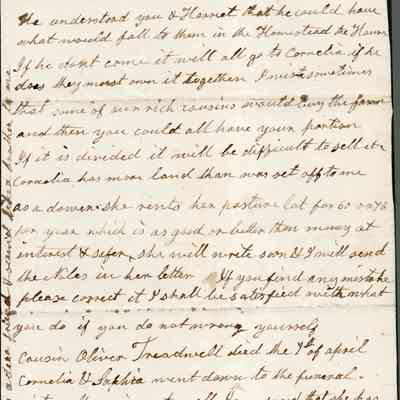 He understood you & Harriet that he could have
what would fall to them in the Homestead the House
If he dont come it will all go to Cornelia if he
does they most own it together I wish sometimes
that some of our rich cousins would buy the farm
and then you could all have your portion
If it is divided it will be difficult to sell it
Cornelia has more land than was set off to me
as a dower she rents her pasture lot for 60 or 75
per year which is as good or better than money at
interest & safer she will write soon & I will send
the Notes in her letter If you find any mistake
please correct it I shall be satisfied with what
you do if you do not wrong yourself
Cousin Oliver Treadwell died the 7th of april
Cornelia & Sophia went down to the funeral